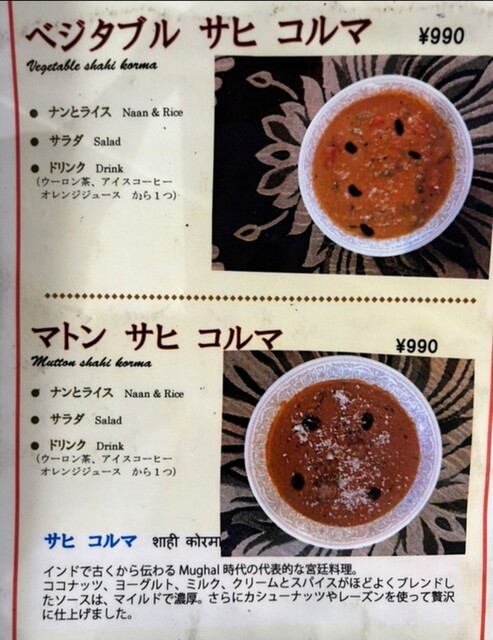 ベジタブル サヒ コルマ ¥990
Vegetable shahi korma
● ナンとライス Naan & Rice
● サラダ Salad
● ドリンク Drink
(ウーロン茶、アイスコーヒー
オレンジジュース から1つ)
マトン サヒ コルマ ¥990
Mutton shahi korma
● ナンとライス Naan & Rice
● サラダ Salad
● ドリンク Drink
(ウーロン茶、アイスコーヒー
オレンジジュース から1つ)
サヒ コルマ शाही कोरमा
インドで古くから伝わる Mughal 時代の代表的な宮廷料理。
ココナッツ、ヨーグルト、ミルク、クリームとスパイスがほどよくブレンドし
たソースは、マイルドで濃厚。さらにカシューナッツやレーズンを使って贅沢
に仕上げました。